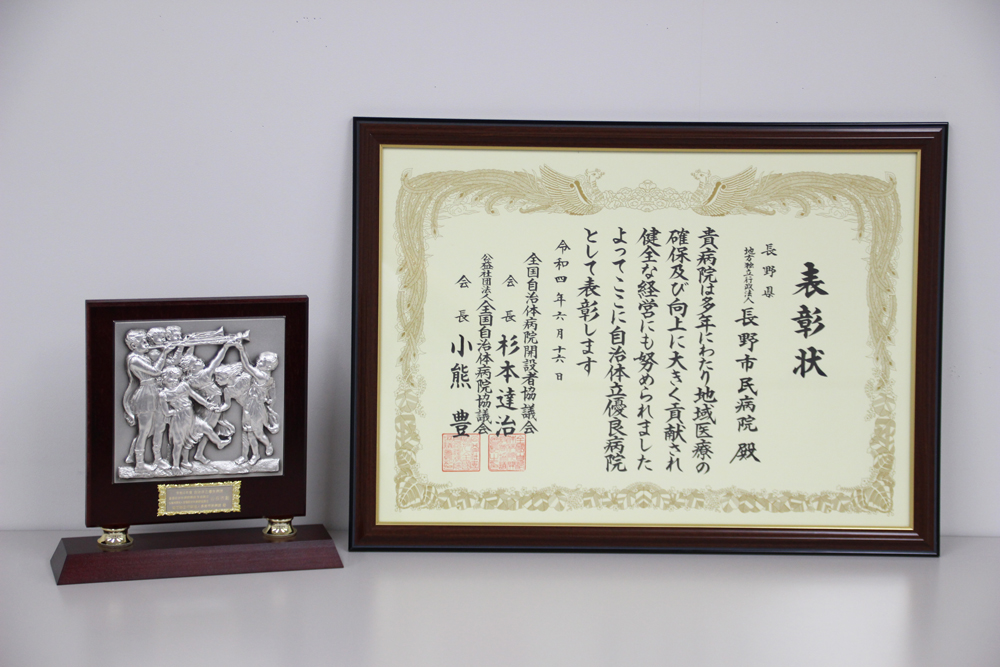 表彰状
長野県
地方独立行政法人 長野市民病院 殿
貴病院は多年にわたり地域医療の
確保及び向上に大きく貢献され
健全な経営にも努められました
よってここに自治体立優良病院
として表彰します
令和四年六月十六日
全国自治体病院開設者協議会
会長 杉本達治
公益社団法人全国自治体病院協議会
会長 小熊豊